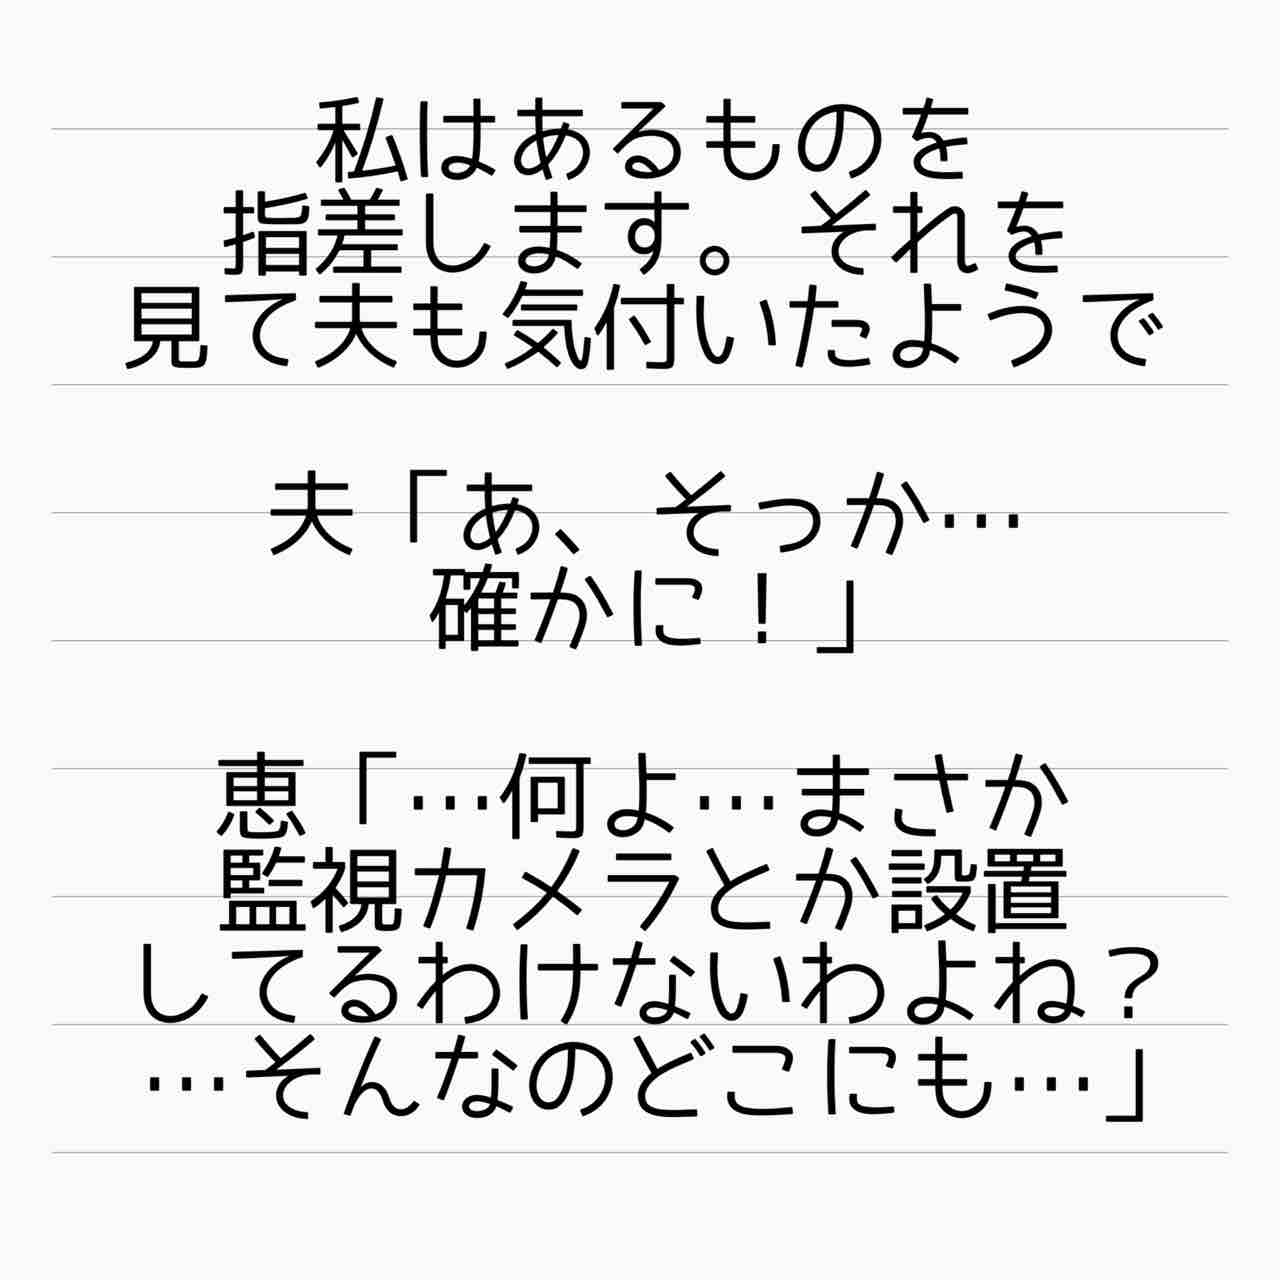 私はあるものを
指差します。それを
見て夫も気付いたようで
夫「あ、そっか…
確かに！」
恵「…何よ…まさか
監視カメラとか設置
してるわけないわよね？
…そんなのどこにも…」